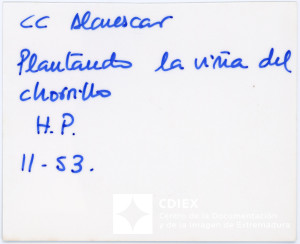 CC Alcuescar
Plantando la viña del
chorrillo
H.P.
11-53.
CDIEX
Centro de la Documentación
y de la Imagen de Extremadura